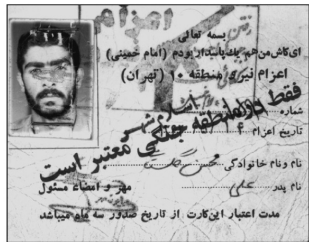 بسمه تعالی
ای کاش من هم یک پاسدار بودم (امام خمینی)
اعزام نیرو منطقه ۱۰ (تهران)
شماره
تاریخ اعزام
فقط در منطقه جنگی معتبر است
نام و نام خانوادگی محسن
نام پدر علی
مهر و امضاء مسئول
مدت اعتبار این کارت از تاریخ صدور سه ماه میباشد